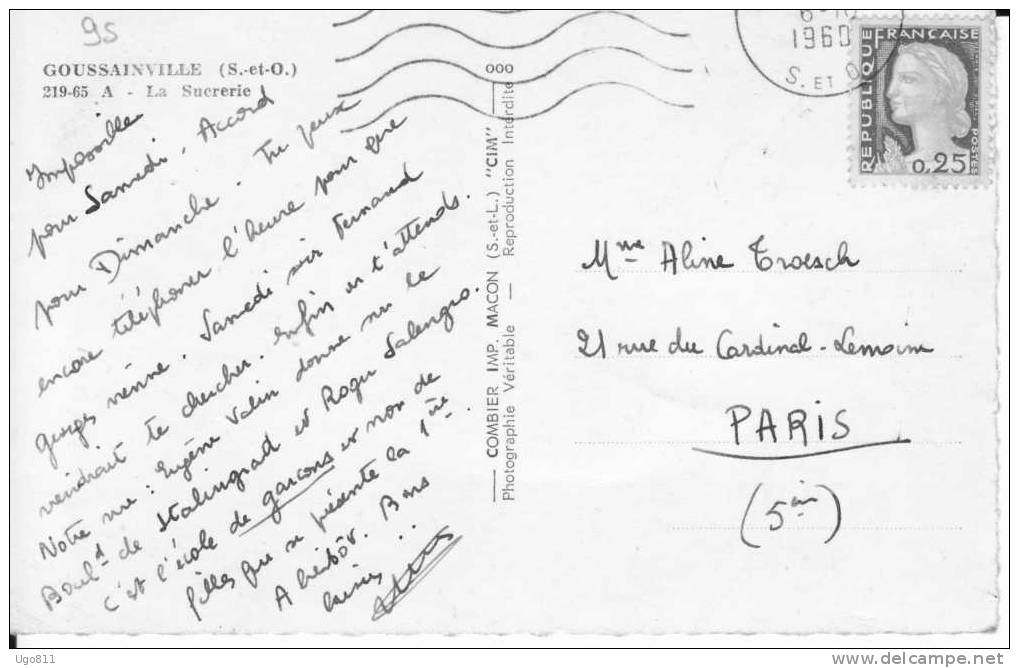 95
GOUSSAINVILLE (S.-et-O.)
219-65 A - La Sucrerie
Impossible
pour Samedi. Accord
pour Dimanche. Tu peux
encore téléphoner l'heure pour que
Georges vienne. Samedi soir Fernand
viendrait te chercher. Enfin on t'attends.
Notre rue : Eugène Varlin donne sur le
Boul.d de Stalingrad et Roger Salengro.
C'est l'école de garçons et non de
filles qui se présente la 1ère.
A bientôt. Bons
baisers
ooo
COMBIER IMP. MACON (S.-et-L.) "CIM"
Photographie Véritable — Reproduction Interdite
6-10
1960
S. ET O
REPUBLIQUE FRANCAISE
POSTES
0,25
Mme Aline Troesch
21 rue du Cardinal-Lemoine
PARIS
(5em)
Ugo811
www.delcampe.net